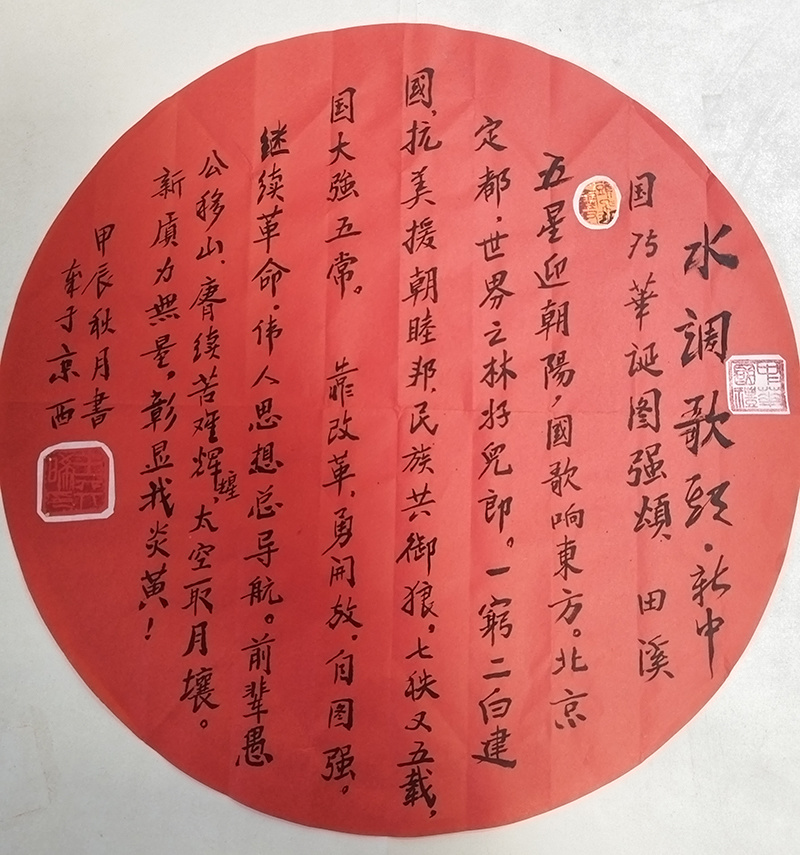 水調歌頭·新中
国75華诞图强頌 田溪
五星迎朝陽，國歌响東方。北京
定都，世界之林好兒郎。一窮二白建
國，抗美援朝睦邦，民族共御狼。七秩又五載，
国大強五常。 靠改革，勇開放。自图强。
继续革命。伟人思想总导航。前辈愚
公移山，赓续苦难辉煌，太空取月壤。
新质力無量，彰显我炎黄！
甲辰秋月書
於京西
中華